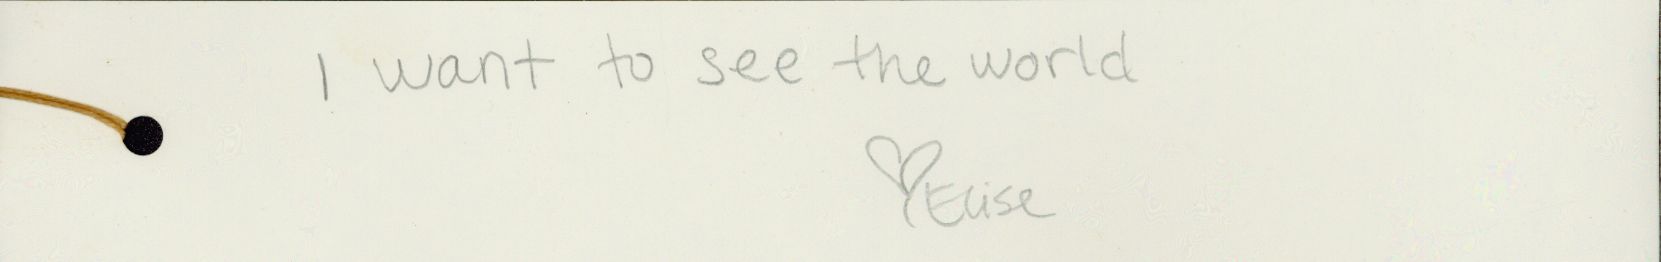 I want to see the world
♡Elise